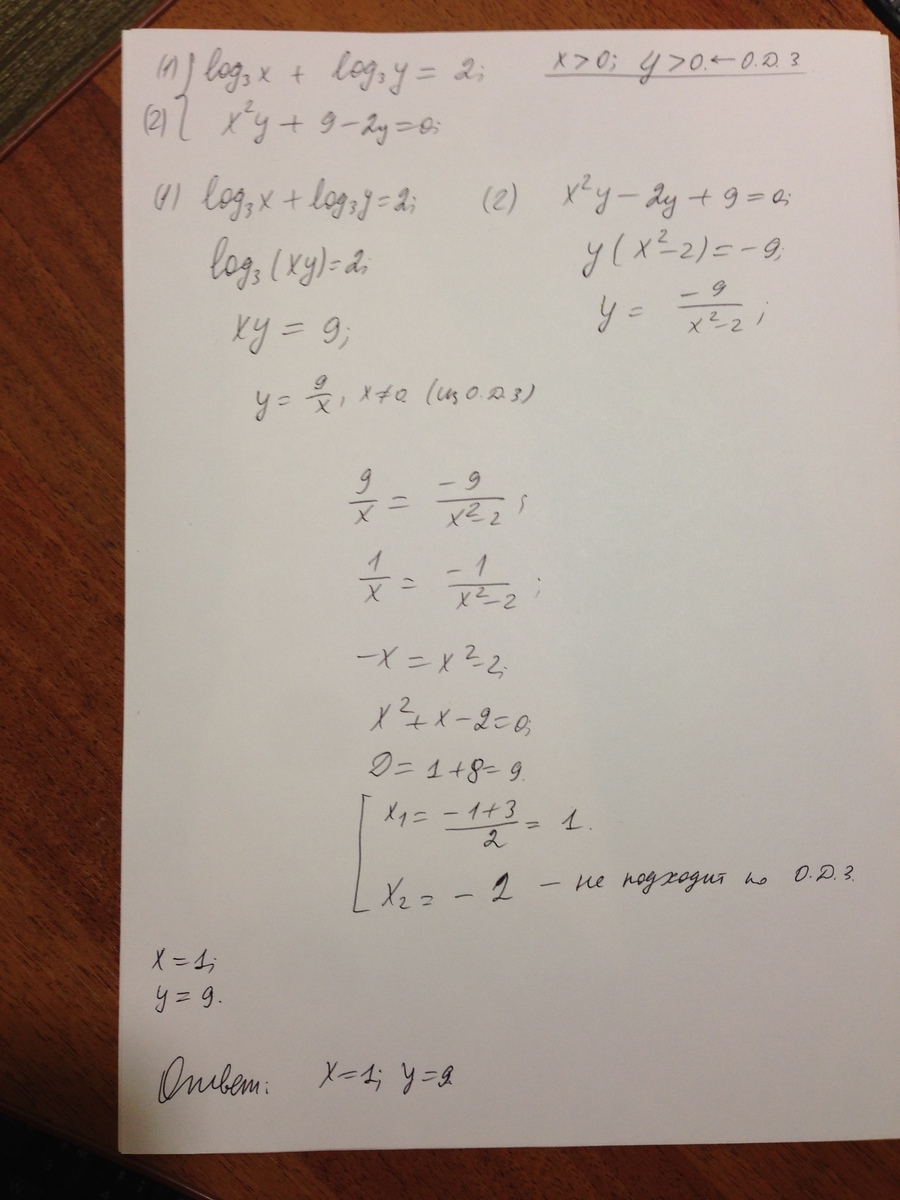 (1) log₃x + log₃y = 2; x>0; y>0. ← О.Д.З
(2) x²y + 9 – 2y = 0;
(1) log₃x + log₃y = 2; (2) x²y – 2y + 9 = 0;
log₃(xy) = 2; y(x²–2) = –9;
xy = 9; y = –9/(x²–2);
y = 9/x, x≠0 (из О.Д.З)
9/x = –9/(x²–2);
1/x = –1/(x²–2);
–x = x²–2;
x² + x – 2 = 0;
D = 1 + 8 = 9.
x₁ = (–1+3)/2 = 1.
x₂ = – 2 – не подходит по О.Д.З.
x = 1;
y = 9.
Ответ: x = 1; y = 9